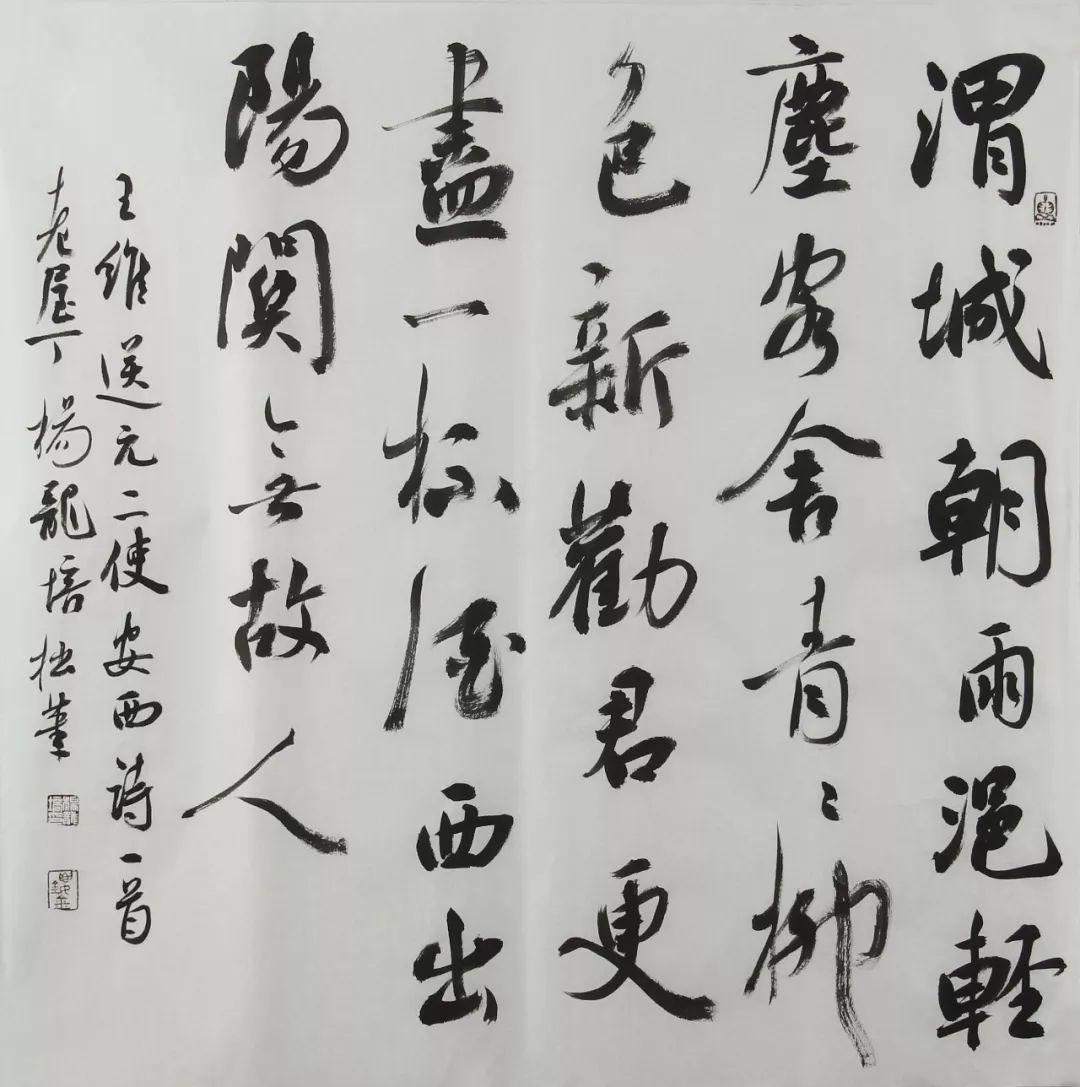 渭城朝雨浥輕
塵客舍青〻柳
色新勸君更
盡一杯酒西出
陽關無故人
王維送元二使安西詩一首
老屋丁楊龍培拙筆